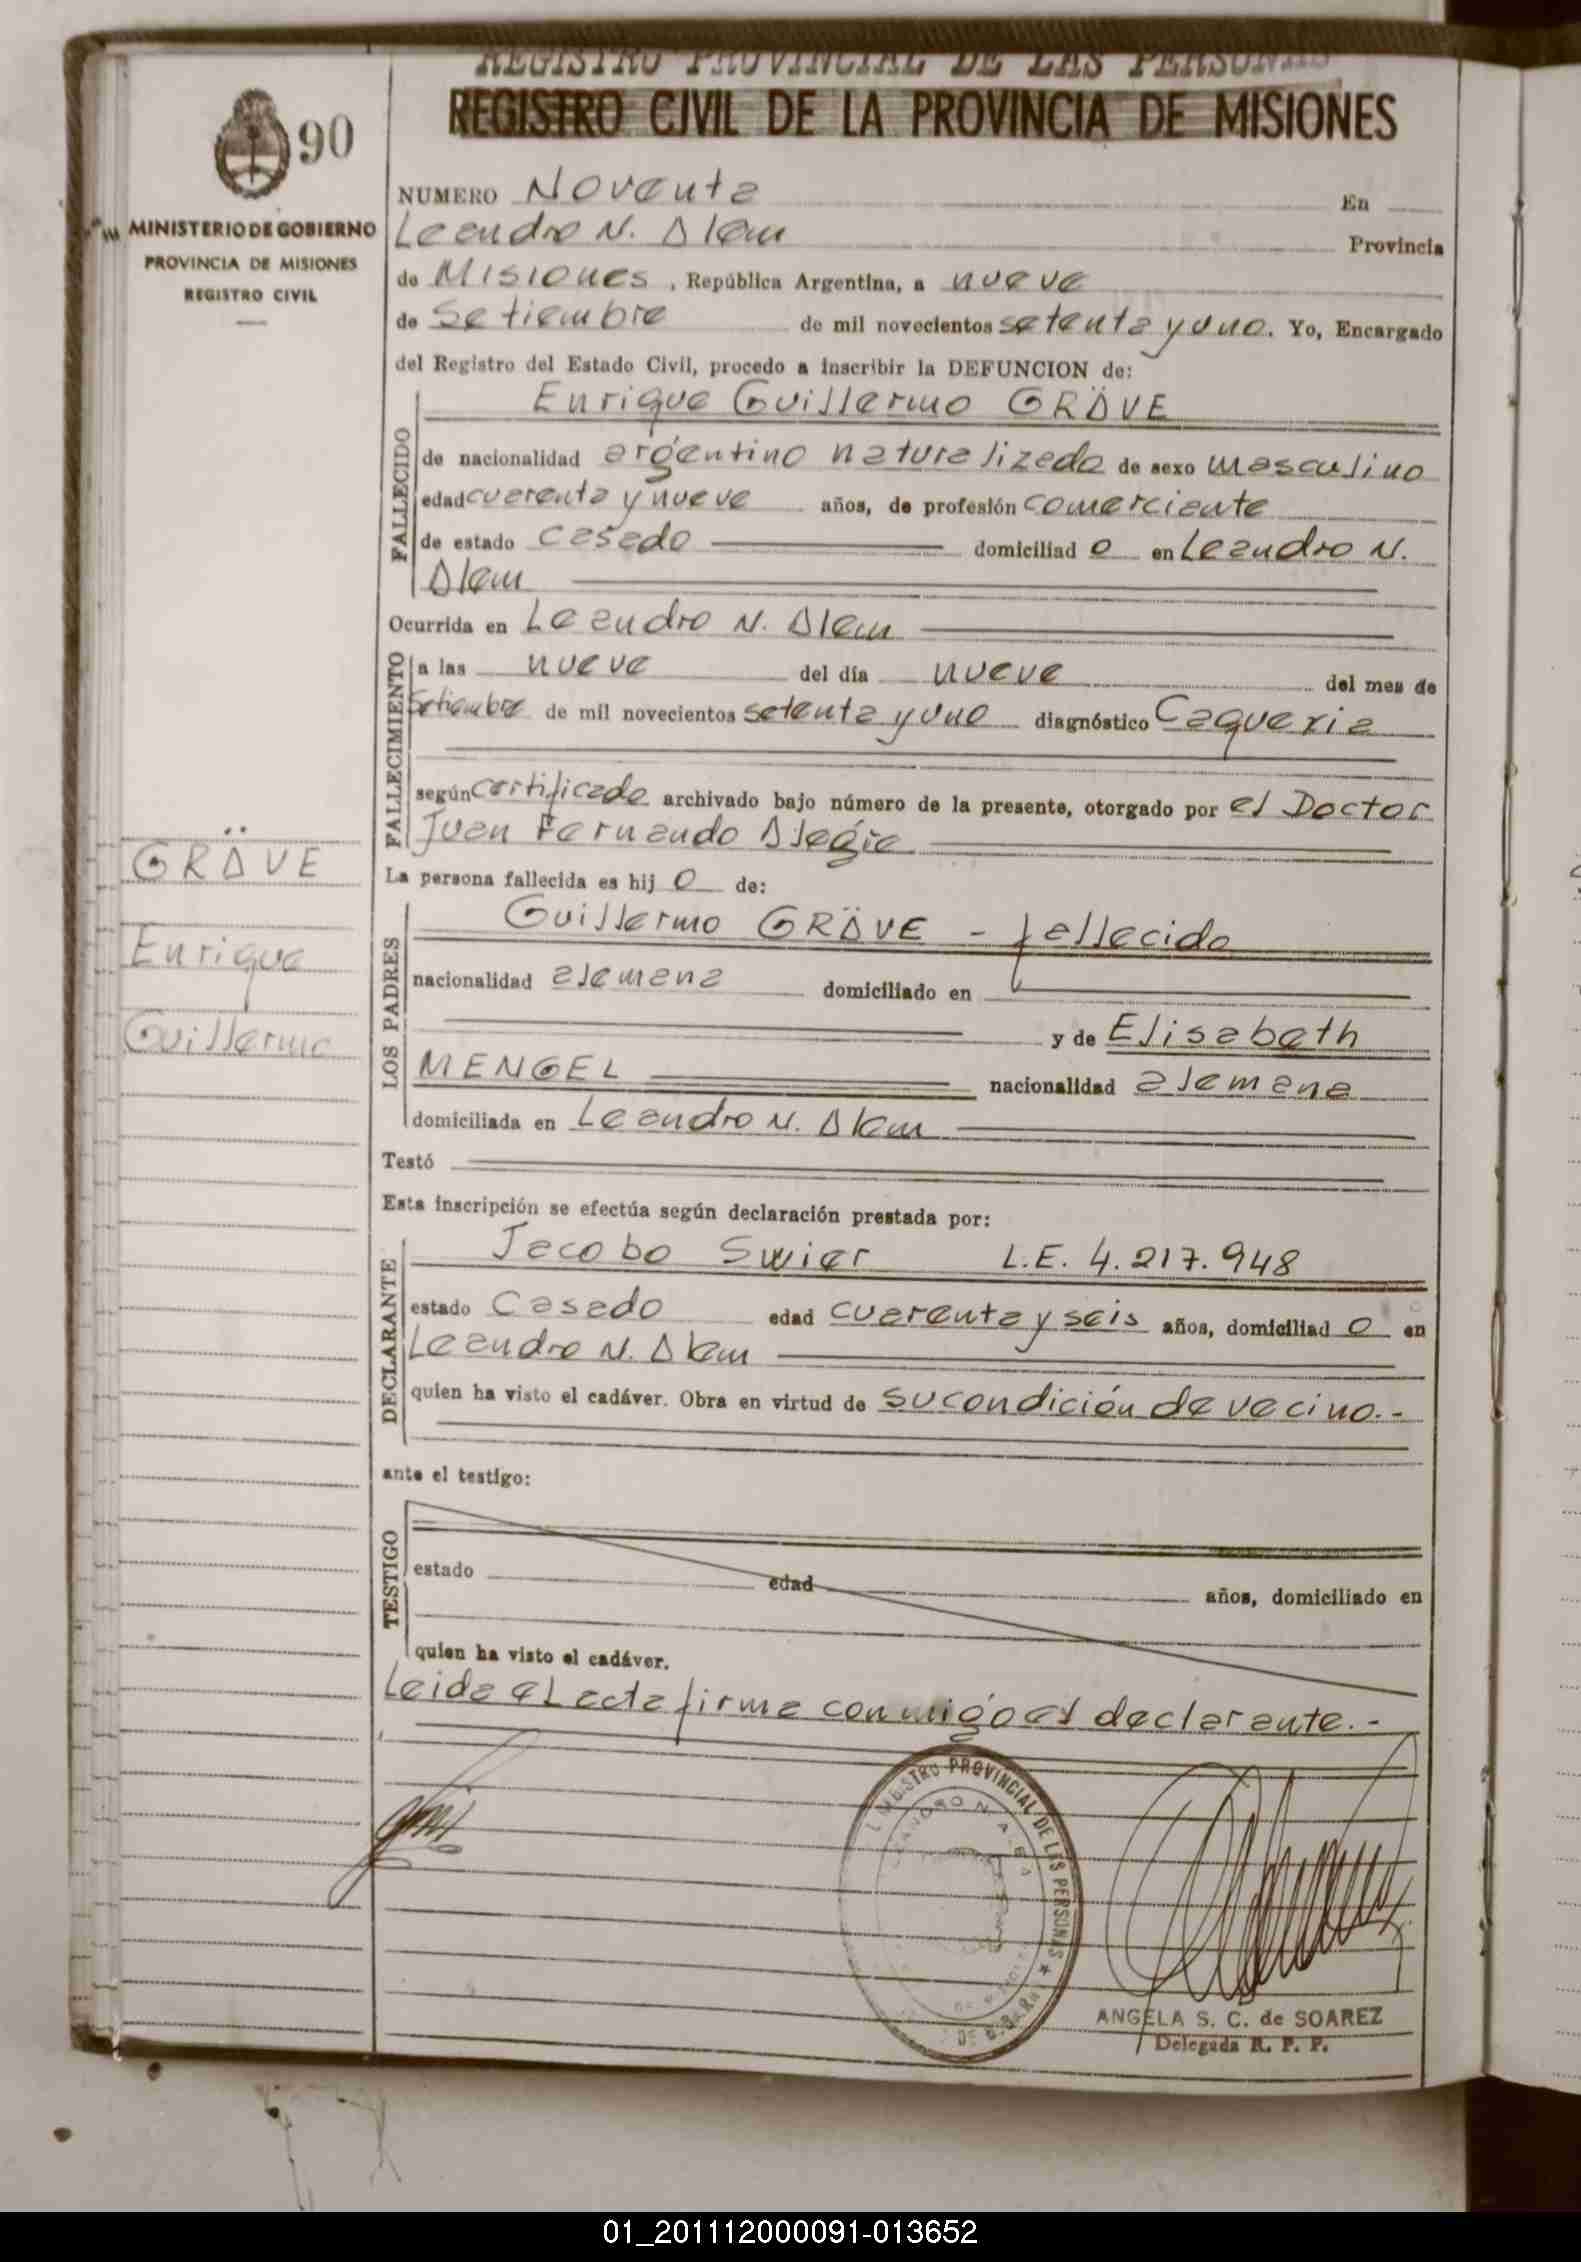 REGISTRO PROVINCIAL DE LAS PERSONAS
REGISTRO CIVIL DE LA PROVINCIA DE MISIONES
90
MINISTERIO DE GOBIERNO
PROVINCIA DE MISIONES
REGISTRO CIVIL
NUMERO Noventa En
Leandro N. Alem Provincia
de Misiones, República Argentina, a nueve
de Setiembre de mil novecientos setenta y uno. Yo, Encargado
del Registro del Estado Civil, procedo a inscribir la DEFUNCION de:
FALLECIDO
Enrique Guillermo GRÄVE
de nacionalidad argentino naturalizado de sexo masculino
edad cuarenta y nueve años, de profesión comerciante
de estado casado domiciliad o en Leandro N.
Alem
Ocurrida en Leandro N. Alem
FALLECIMIENTO
a las nueve del día nueve del mes de
Setiembre de mil novecientos setenta y uno diagnóstico Caquexia
según certificado archivado bajo número de la presente, otorgado por el Doctor
Juan Fernando Alegre
La persona fallecida es hij o de:
GRÄVE
Enrique
Guillermo
LOS PADRES
Guillermo GRÄVE - fallecido
nacionalidad alemana domiciliado en
y de Elisabeth
MENGEL nacionalidad alemana
domiciliada en Leandro N. Alem
Testó
Esta inscripción se efectúa según declaración prestada por:
DECLARANTE
Jacobo Swier L.E. 4.217.948
estado casado edad cuarenta y seis años, domiciliad o en
Leandro N. Alem
quien ha visto el cadáver. Obra en virtud de su condición de vecino.-
ante el testigo:
TESTIGO
estado edad años, domiciliado en
quien ha visto el cadáver.
Leida el acta firma conmigo el declarante.-
REGISTRO PROVINCIAL DE LAS PERSONAS
LEANDRO N. ALEM
ANGELA S. C. de SOAREZ
Delegada R. P. P.
01_201112000091-013652